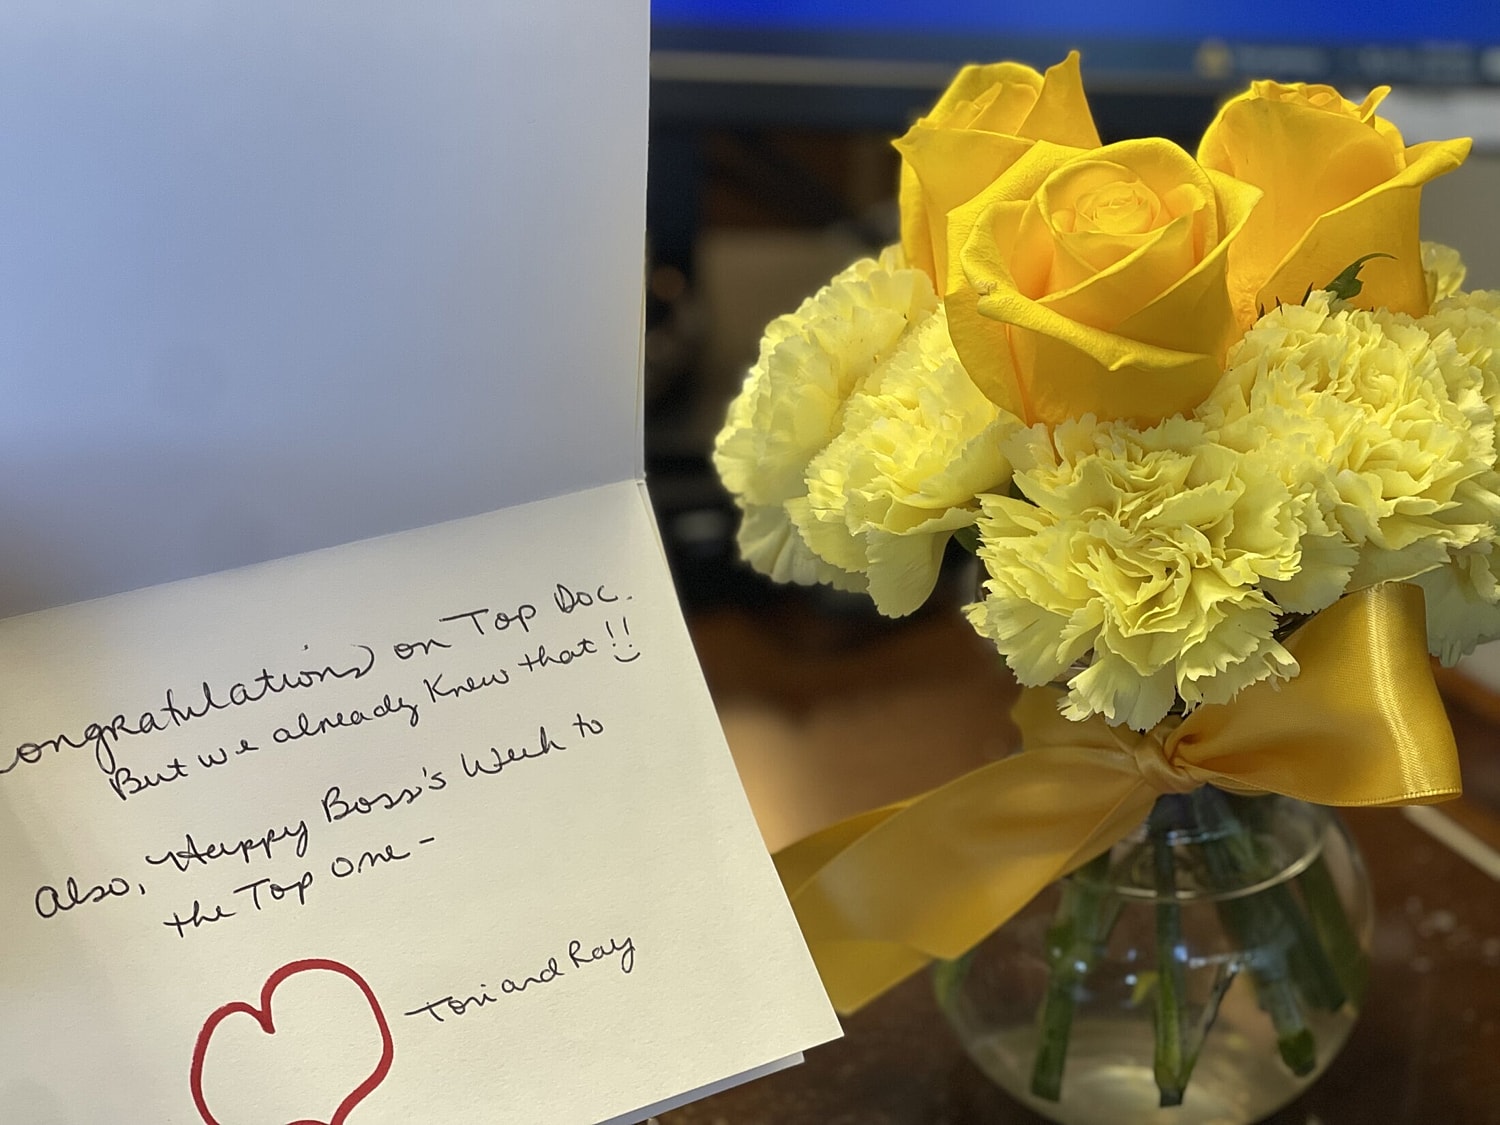 Congratulations on Top Doc.
But we already knew that!!
Also, Happy Boss's Week to
the Top one -
Tori and Ray